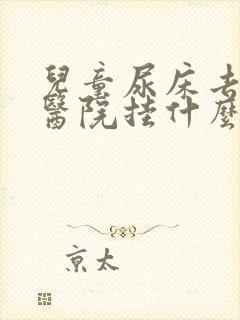 兒童尿床去
醫院挂什麽
京太